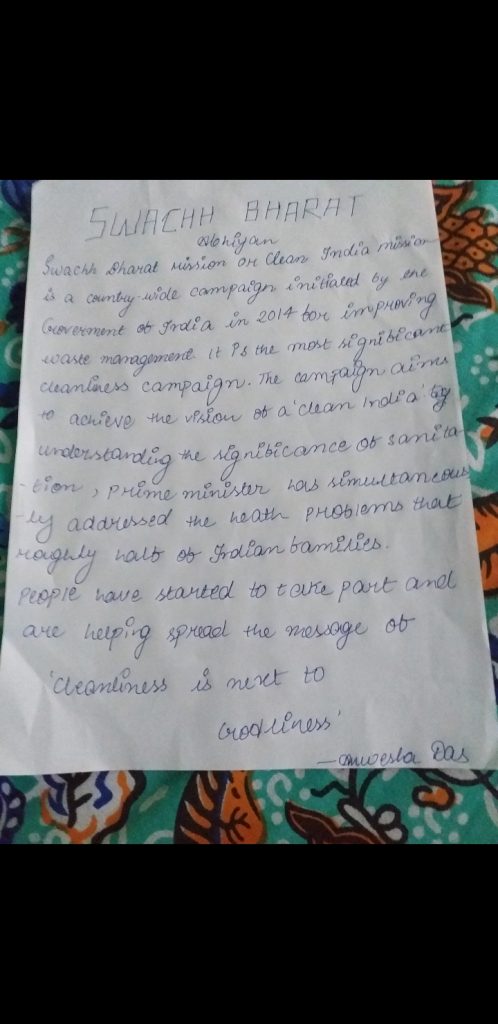 SWACHH BHARAT
Abhiyan
Swachh Bharat Mission or Clean India mission
is a country-wide campaign initiated by the
Goverment of India in 2014 for improving
waste management. It is the most significant
cleanliness campaign. The campaign aims
to achieve the vision of a 'clean India' by
understanding the significance of sanita
-tion, prime minister has simultaneous
-ly addressed the heath problems that
roughly half of Indian families.
People have started to take part and
are helping spread the message of
'Cleanliness is next to
Godliness'
- Anwesha Das